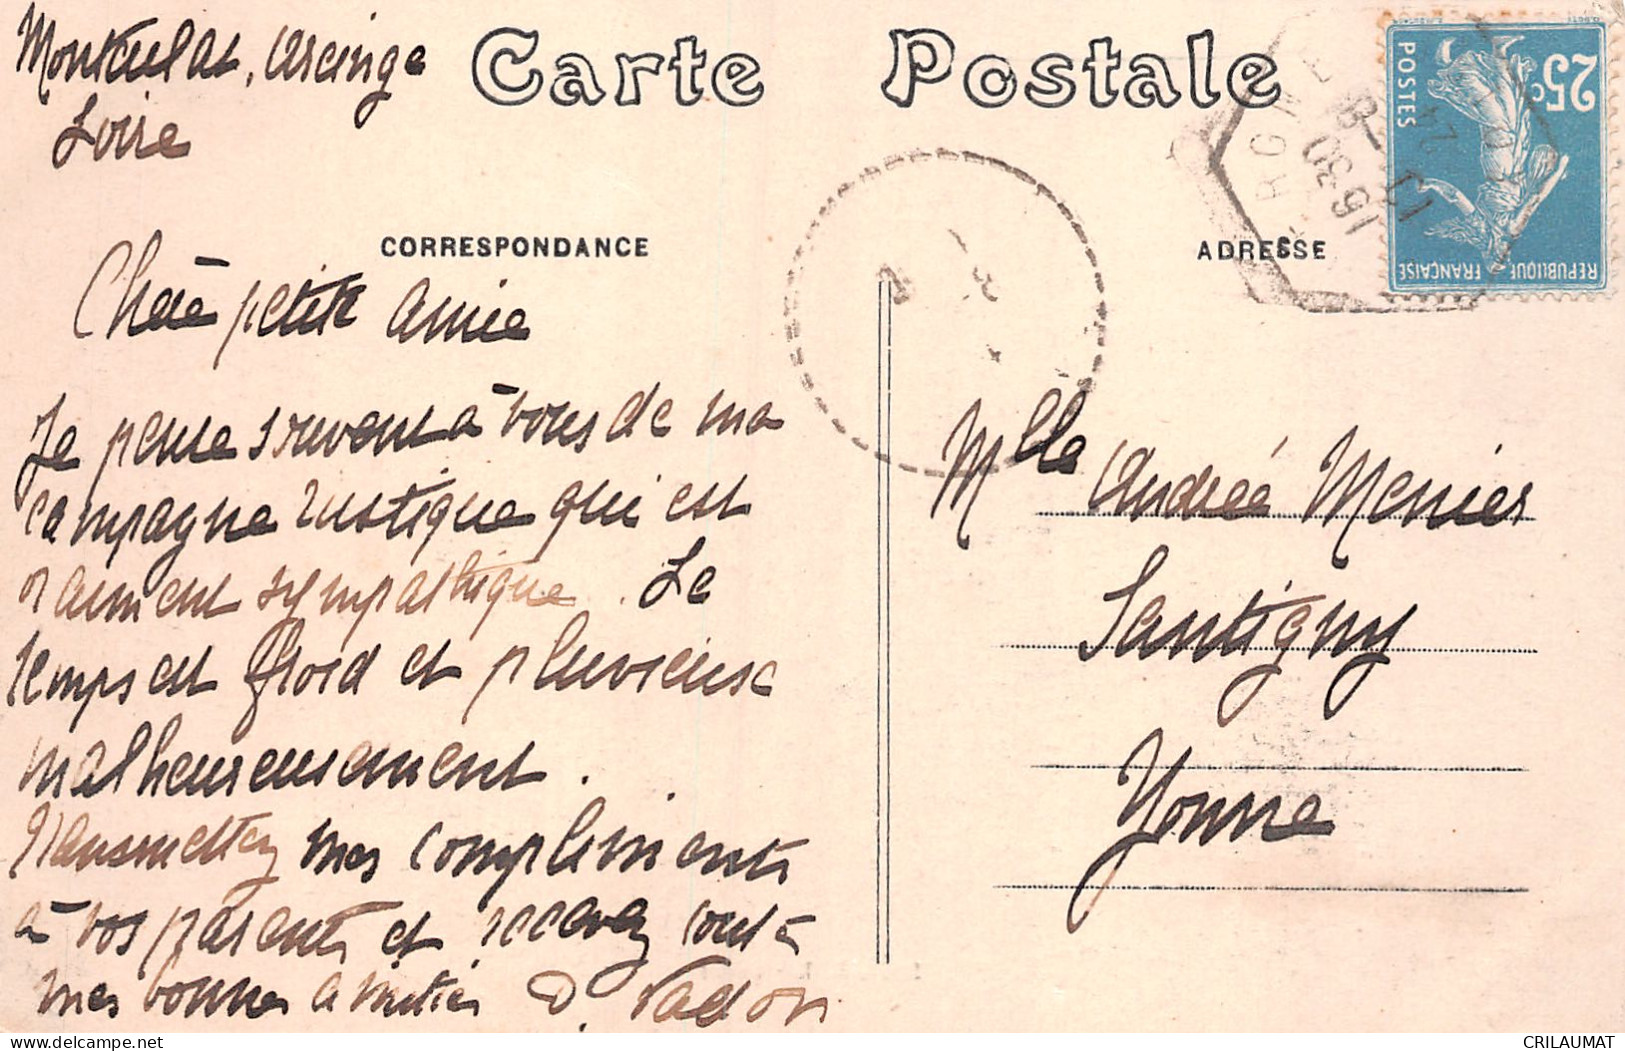 Carte Postale
Arcinge
Loire
CORRESPONDANCE
ADRESSE
25c
POSTES
REPUBLIQUE FRANÇAISE
15 30
Chère petite amie
Je pense souvent à vous de ma
campagne rustique qui est
vraiment sympathique. Le
temps est froid et pluvieux
malheureusement.
Transmettez mes compliments
à vos parents et recevez toutes
mes bonnes amitiés D.
Mlle Andrée Menier
Santigny
Yonne
CRILAUMAT